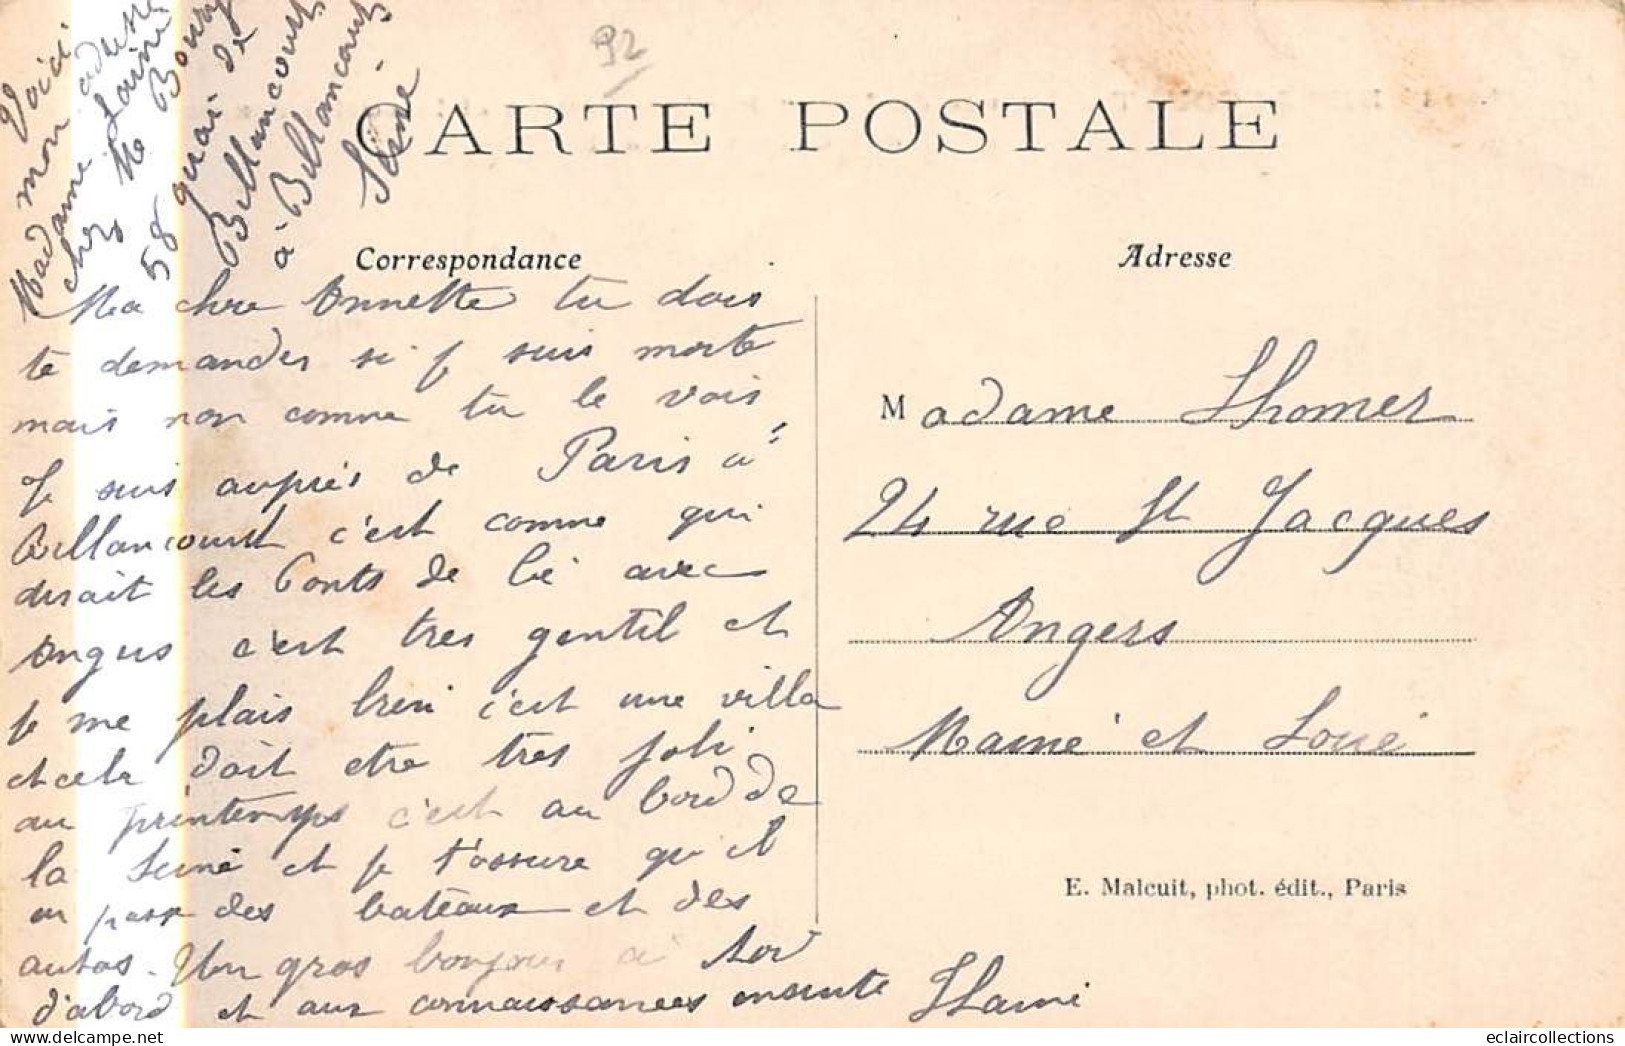 92
CARTE POSTALE
Voici
mon adresse
Madame
chers Mr
58 quai de
Billancourt
à Billancourt
Seine
Correspondance
Adresse
Ma chre Annette tu dois
te demander si je suis morte
mais non comme tu le vois
Je suis auprès de Paris à
Billancourt c'est comme qui
dirait les Ponts de Cé avec
Angers c'est tres gentil et
je me plais bien c'est une villa
et cela doit etre tres joli
au printemps c'est au bord de
la Seine et je t'assure qu'il
en passe des bateaux et des
autos. Un gros bonjour à toi
d'abord et aux connaissances ensuite
Madame Thomer
24 rue St Jacques
Angers
Maine et Loire
E. Malcuit, phot. édit., Paris
eclaircollections